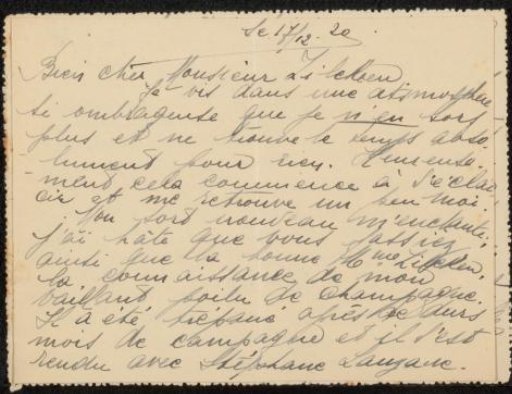 le 17/12. 20
Bien cher Monsieur Zilcken
Je vis dans une atmosphère
si ombrageuse que je n'en sors
plus et ne trouve le temps abso
lument pour rien. Heureuse
ment cela commence à s'éclai
cir et me retrouve un peu moi
Mon sort nouveau m'enchante,
j'ai hâte que vous fassiez
ainsi que la bonne Mme Zilcken
la connaissance de mon
vaillant poilu de Champagne.
Il a été trépané après de durs
mois de campagne et il s'est
rendu avec Stéphane Lauzane.